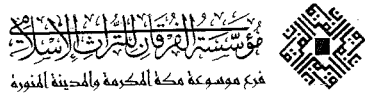 مؤسسة الفرقان للتراث الإسلامي
فرع موسوعة مكة المكرمة والمدينة المنورة